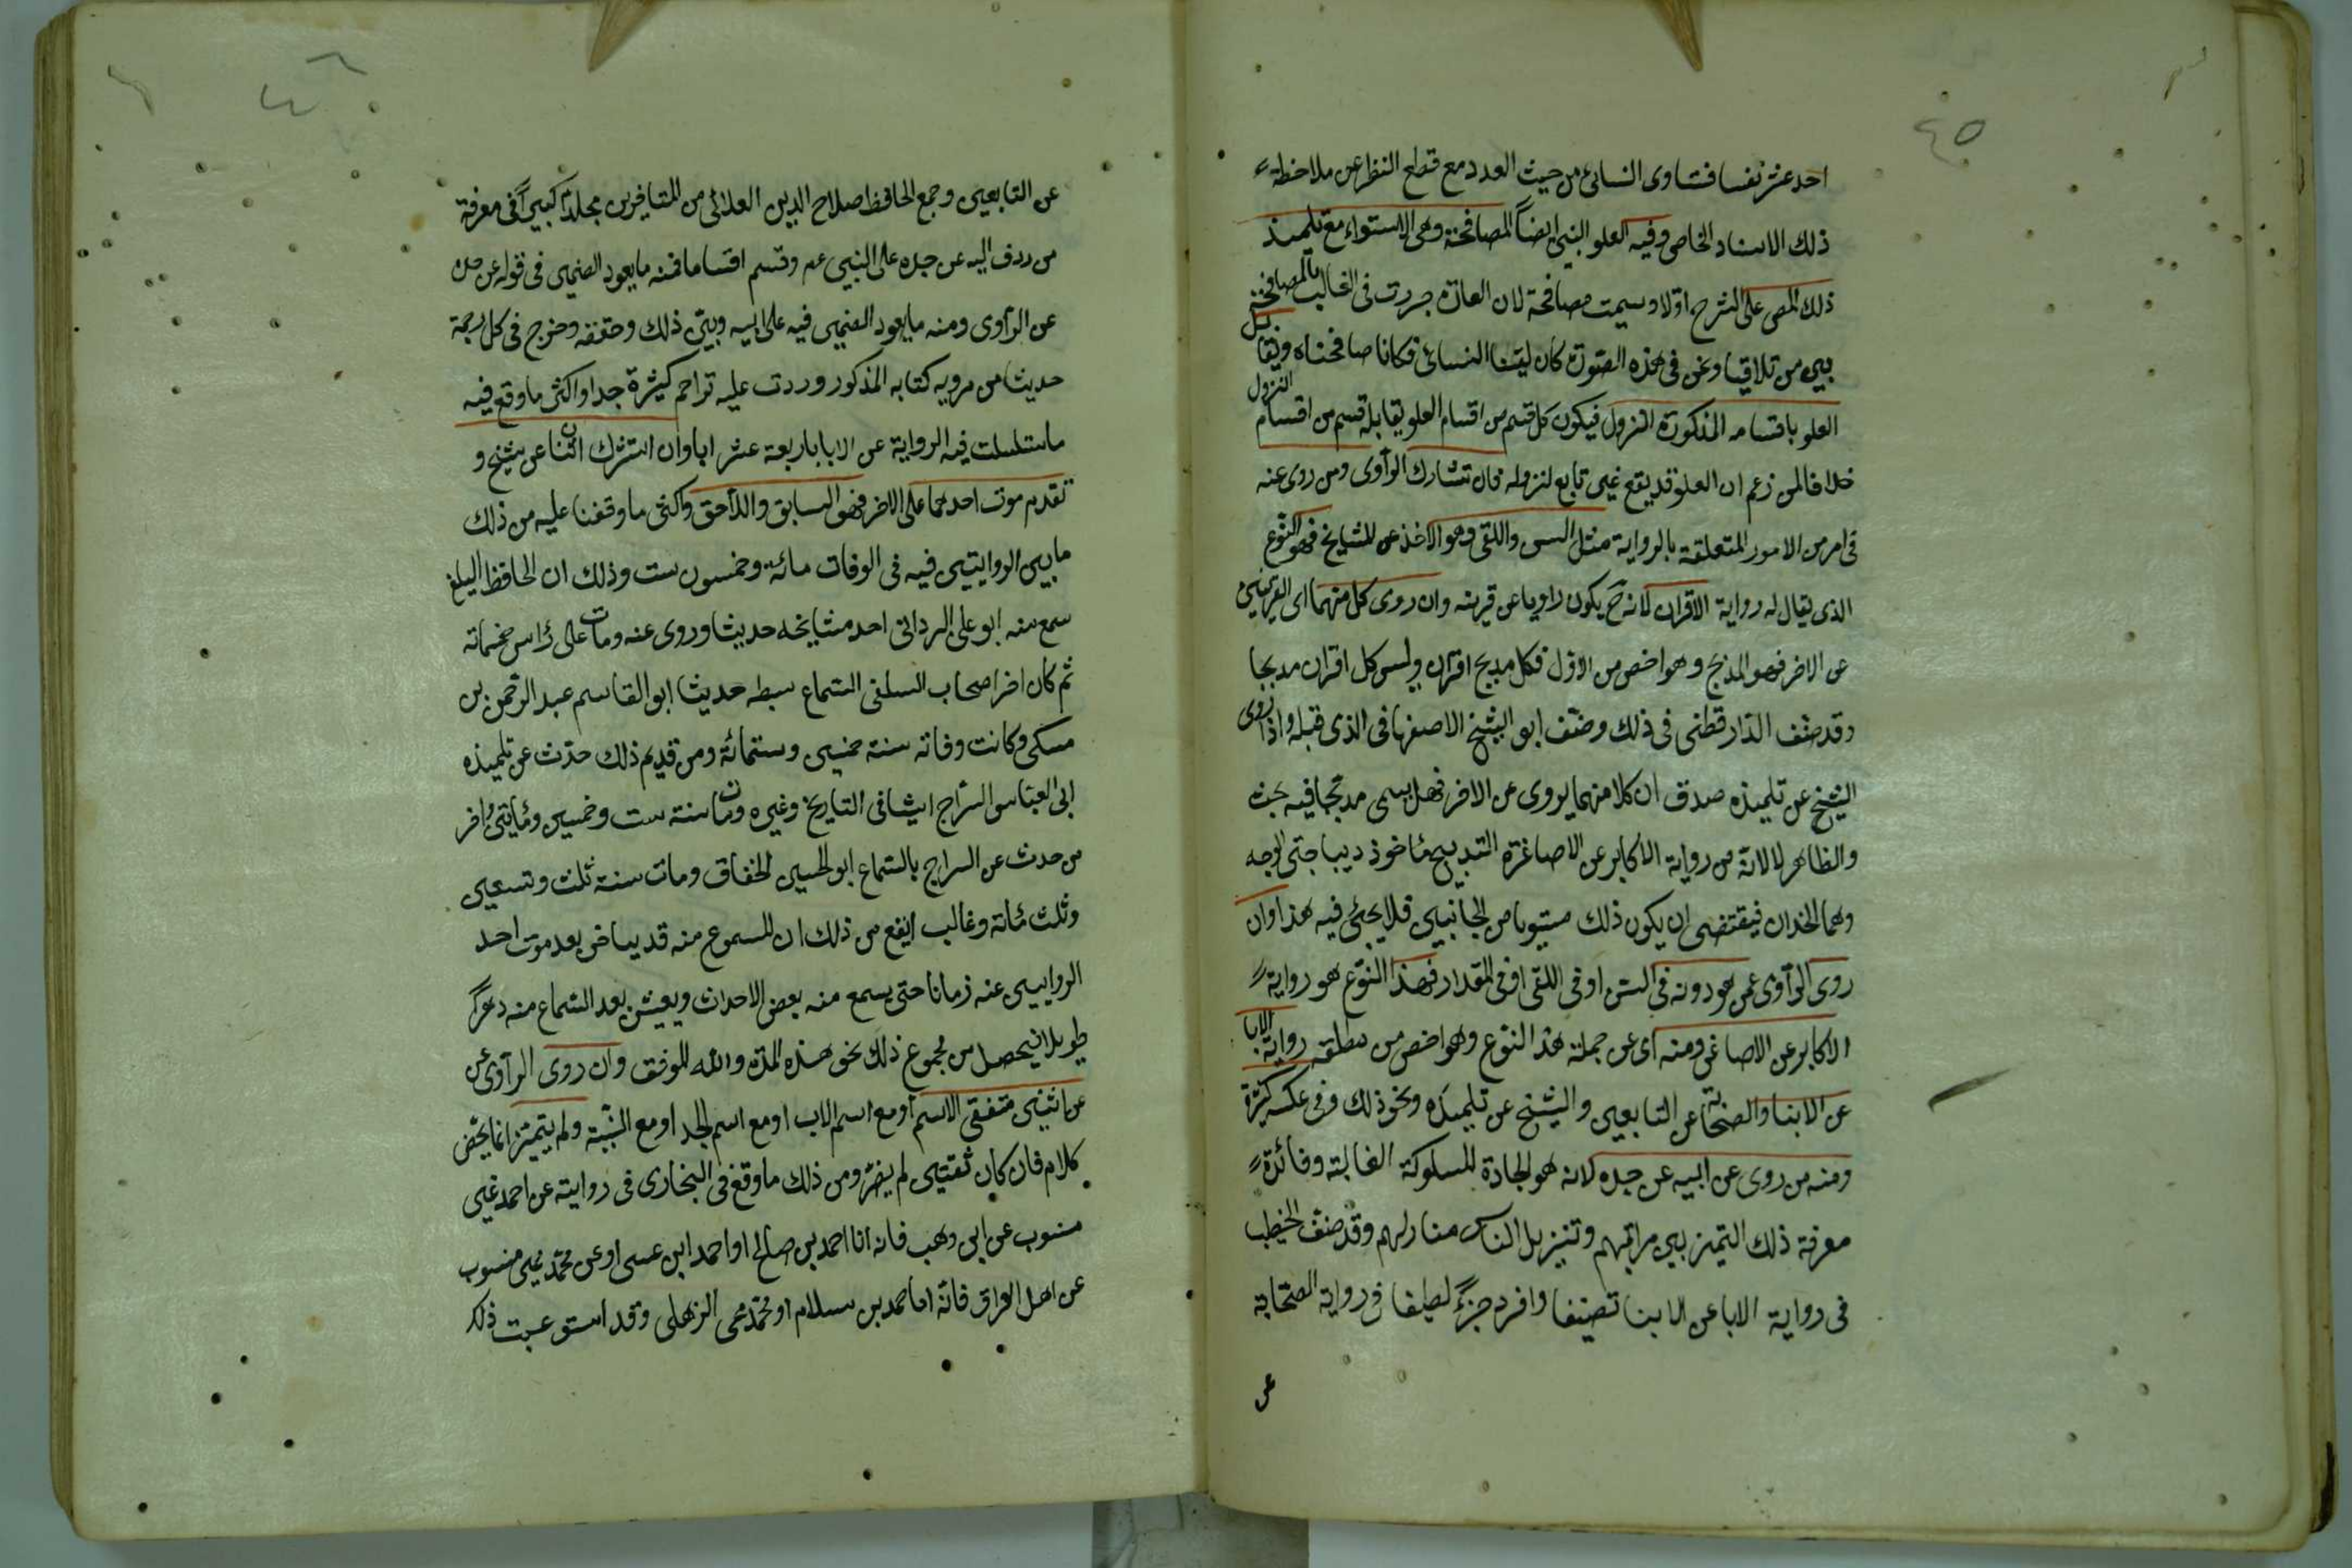 ٤٥
احد عشر نفسا فنساوى النسائى من حيث العدد مع قطع النظر عن ملاحظة
ذلك الاسناد الخاص وفيه العلو النبى ايضاً المصافحة وهى الاستواء مع تلميذ
ذلك المص على الشرح اولا وسميت مصافحة لان العادة جرت فى الغالب بالمصافحة
بين من تلاقيا ونحن فى هذه الصورة كان لقينا النسائى فكانا صافحناه ويقابل
العلو باقسامه المذكورة النزول فيكون كل قسم من اقسام العلو يقابله قسم من اقسام النزول
خلافا لمن زعم ان العلو قد يقع غير تابع لنزوله فان تشارك الراوى ومن روى عنه
فى امر من الامور المتعلقة بالرواية مثل السن واللقى وهو الاخذ عن المشايخ فهو النوع
الذى يقال له رواية الاقران لانه ح يكون راويا عن قرينه وان روى كل منهما اى القرينين
عن الاخر فهو المدبج وهو اخص من الاول فكل مدبج اقران وليس كل اقران مدبجا
وقد صنف الدارقطنى فى ذلك وصنف ابو الشيخ الاصفهانى فى الذى قبله واذا روى
الشيخ عن تلميذه صدق ان كلا منهما يروى عن الاخر فهل يسمى مدبجا فيه بحث
والظاهر لا لانه من رواية الاكابر عن الاصاغر التدبيج مأخوذ ديباجتى الوجه
وهما الخدان فيقتضى ان يكون ذلك مستويا من الجانبين فلا يجئ فيه هذا وان
روى الراوى عمن هو دونه فى السن او فى اللقى او فى المقدار فهذا النوع هو رواية
الاكابر عن الاصاغر ومنه اى عن جملة هذا النوع وهو اخص من مطلقه رواية الابا
عن الابنا والصحابة عن التابعين والشيخ عن تلميذه ونحو ذلك وفى عكسه كثرة
ومنه من روى عن ابيه عن جده لانه هو الجادة المسلوكة الغالبة وفائدة
معرفة ذلك التميز بين مراتبهم وتنزيل الناس منازلهم وقد صنف الخطيب
فى رواية الابا عن الابنا تصنيفا وافرد جزءً لطيفا فى رواية الصحابة
عن
٤٦
عن التابعين وجمع الحافظ صلاح الدين العلائى من المتأخرين مجلداً كبيراً فى معرفة
من روى ابيه عن جده على النبى عم وقسم اقساما فمنه ما يعود الضمير فى قوله عن جده
عن الراوى ومنه ما يعود الضمير فيه على ابيه وبين ذلك وحققه وخرج فى كل ترجمة
حديثا من مرويه كتابه المذكور وردت عليه تراجم كثيرة جدا واكثر ما وقع فيه
ما تسلسلت فيه الرواية عن الابا باربعة عشر ابا وان اشترك اثنان عن شيخ و
تقدم موت احدهما على الاخر فهو السابق واللاحق واكثر ما وقفنا عليه من ذلك
ما بين الروايتين فيه فى الوفات مائة وخمسون ست وذلك ان الحافظ
سمع منه ابو على البردانى احد مشايخه حديثا وروى عنه ومات على رأس خمسمائه
ثم كان اخر اصحاب السلفى السماع سبطه حديثا ابو القاسم عبد الرحمن بن
مسكى وكانت وفاته سنة خمسين وستمائة ومن قديم ذلك حدث عن تلميذه
ابى العباس السراج اشيا فى التاريخ وغيره ومات سنة ست وخمسين ومايتين واخر
من حدث عن السراج بالسماع ابو الحسين الخفاق ومات سنة ثلث وتسعين
وثلث مائة وغالب ايقع من ذلك ان المسموع منه قد يتأخر بعد موت احد
الراويين عنه زمانا حتى يسمع منه بعض الاحداث ويعيش بعد السماع منه دهراً
طويلا فيحصل من مجموع ذلك نحو هذه المدة والله الموفق وان روى الراوى عن
عن اثنين متفقى الاسم او مع اسم الاب او مع اسم الجد او مع النسبة ولم يتميزا
كلام فان كان ثقتين لم يضر ومن ذلك ما وقع فى البخارى فى روايته عن احمد غير
منسوب عن ابن وهب فانه اما احمد بن صالح او احمد ابن عسى او عن محمد غير منسوب
عن اهل العراق فانه اما محمد بن سلام او محمد يحيى الزهلى وقد استوعبت ذلك